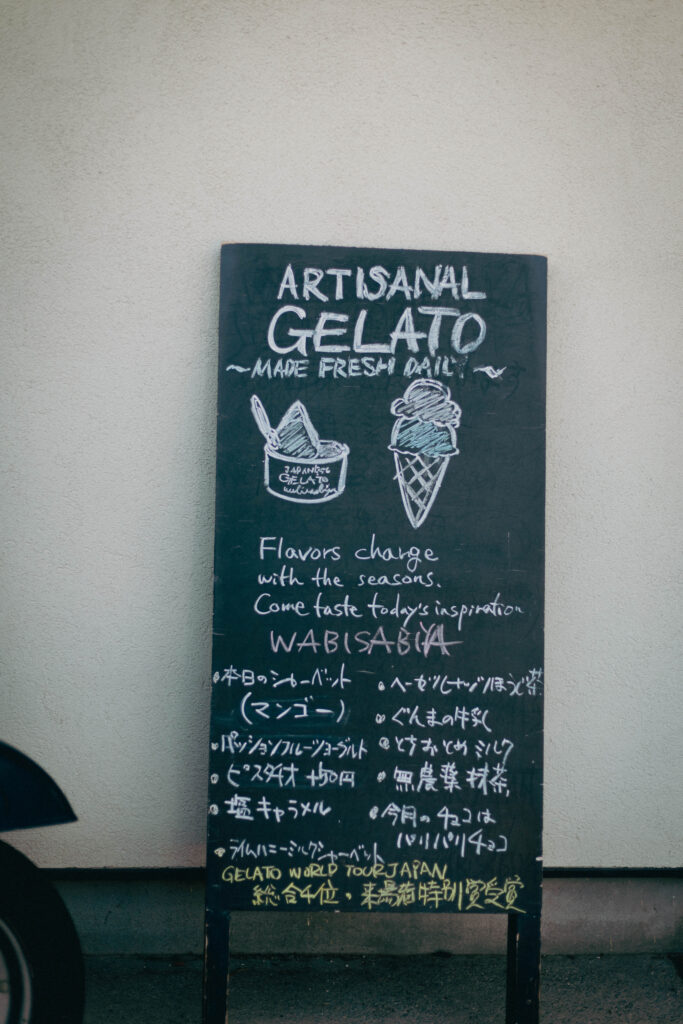 ARTISANAL
GELATO
~MADE FRESH DAILY~
JAPANESE
GELATO
Flavors change
with the seasons.
Come taste today's inspiration
WABISABIYA
・本日のシャーベット
(マンゴー)
・パッションフルーツヨーグルト
・ピスタチオ +50円
・塩キャラメル
・ライムハニーミルクシャーベット
・ヘーゼルナッツほうじ茶
・ぐんまの牛乳
・とちおとめミルク
・無農薬抹茶
・今月のチョコは
パリパリチョコ
GELATO WORLD TOUR JAPAN
総合4位・来場者特別賞受賞